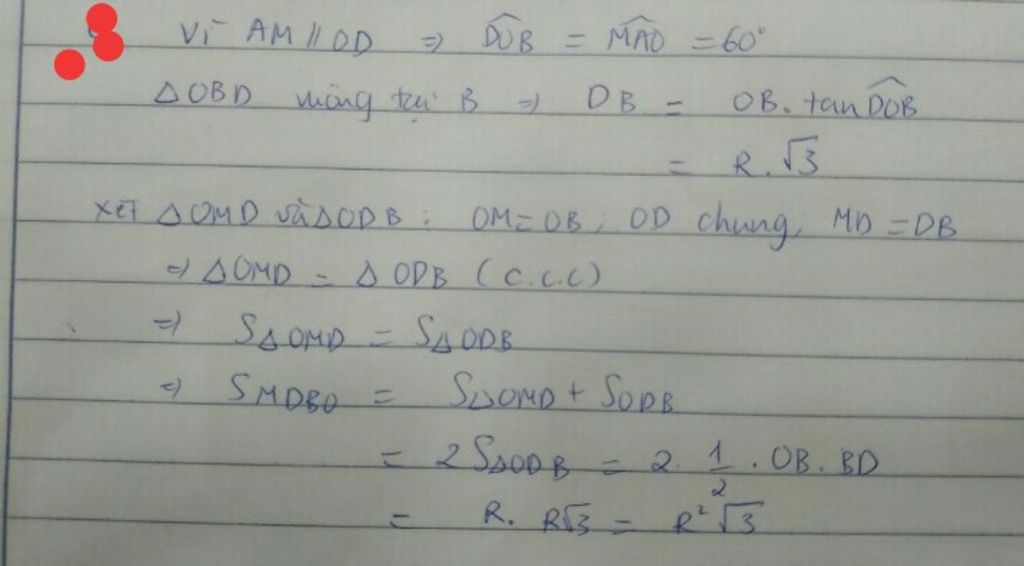 Vì AM // OD ⇒ \widehat{DOB} = \widehat{MAO} = 60°
△OBD vuông tại B ⇒ DB = OB. tan\widehat{DOB}
= R.√3
xét △OMD và △ODB : OM = OB, OD chung, MD = DB
⇒ △OMD = △ODB (c.c.c)
⇒ S△OMD = S△ODB
⇒ SMDBO = S△OMD + SODB
= 2S△ODB = 2. 1/2 . OB. BD
= R. R√3 = R²√3